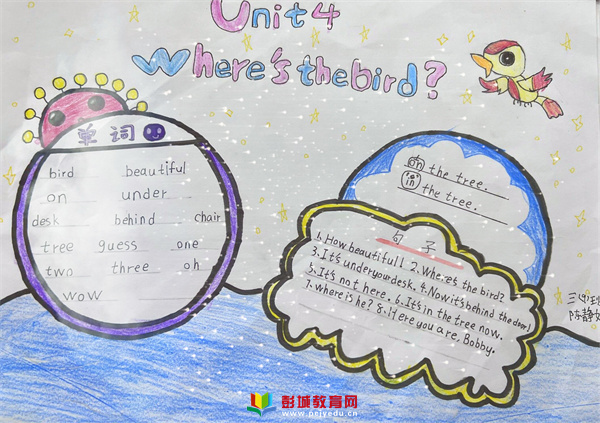 Unit 4
Where's the bird?
单词
bird beautiful
on under
desk behind chair
tree guess one
two three oh
wow
on the tree
in the tree.
句子
1. How beautiful! 2. Where's the bird?
3. It's under your desk. 4. Now it's behind the door!
5. It's not here. 6. It's in the tree now.
7. where is he? 8. Here you are, Bobby.
陈静
彭城教育网
www.pejyedu.cn